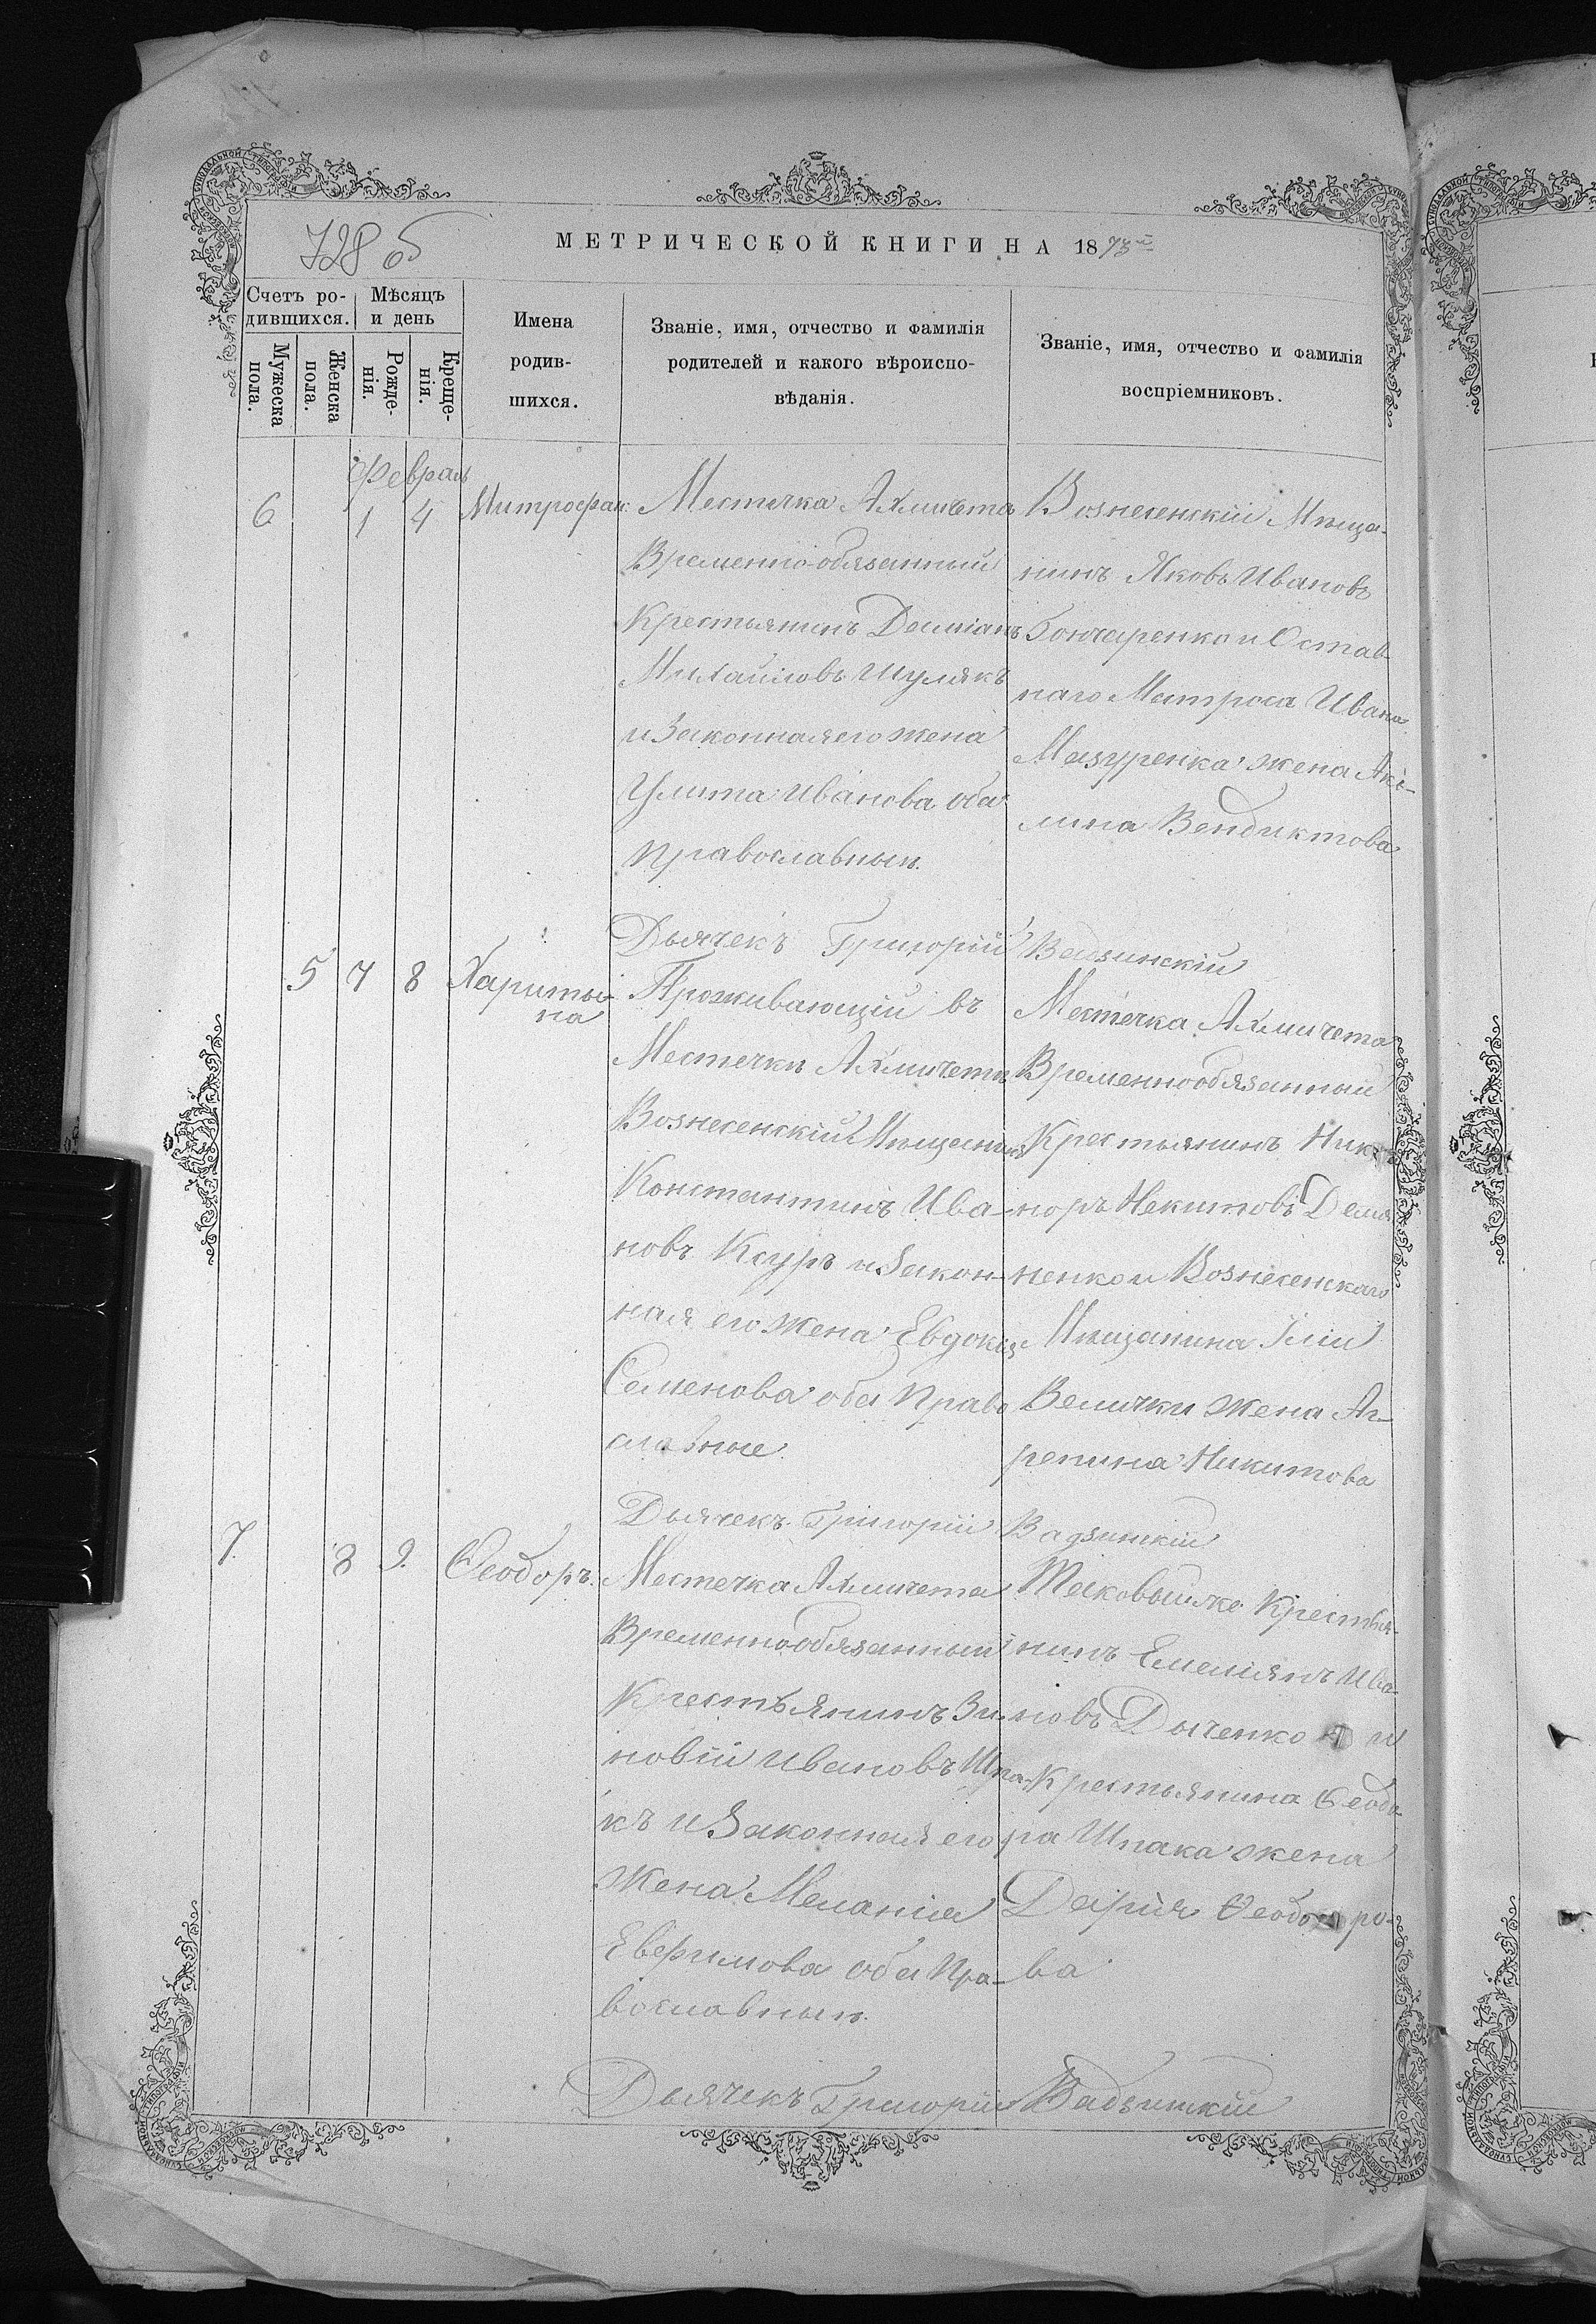 728 об
МЕТРИЧЕСКОЙ КНИГИ НА 1873й
Счетъ ро-
дившихся.
Мѣсяцъ
и день
Мужеска
пола.
Женска
пола.
Рожде-
нія.
Креще-
нія.
Имена
родив-
шихся.
Званіе, имя, отчество и фамилія
родителей и какого вѣроиспо-
вѣданія.
Званіе, имя, отчество и фамилія
воспріемниковъ.
Февраль
6 1 4 Митрофан
Местечка Ахмичета
Временно-обязанный
Крестьянинъ Даміанъ
Михайловъ Шулякъ
и Законная его жена
Улита Иванова оба
православныи.
Вознесенскій Мѣща-
нинъ Яковъ Ивановъ
Гончаренко и Отстав-
наго Матроса Ивана
Мазуренка жена Аки-
лина Вендиктова
Дьячекъ Григорій
5 7 8 Харити-
на
Проживающій въ
Местечки Ахмичети
Вознесенскій Мѣщанинъ
Константинъ Ива-
новъ Кауръ и Закон-
ная его жена Евдокія
Семенова оба Право
славные.
Местечка Ахмичета
Временнообязанный
Крестьянинъ Ник
норъ Некитовъ Демя
ненко и Вознесенскаго
Мѣщанина Иліи
Велички жена Аг-
репина Никитова
Дьячекъ Григорій
7. 8 9. Ѳеодоръ.
Местечка Ахмичета
Временнообязанный
Крестьянинъ Зи-
новій Ивановъ Шпа-
къ и Законная его
Жена Меланія
Евфимова оба Пра-
вославныи.
Таковый же Крестья-
нинъ Емеліянъ Ива-
новъ Дьяченко и
Крестьянина Ѳеодо
ра Шпака жена
Дарія Ѳеодоро-
ва
Дьячекъ Григорій